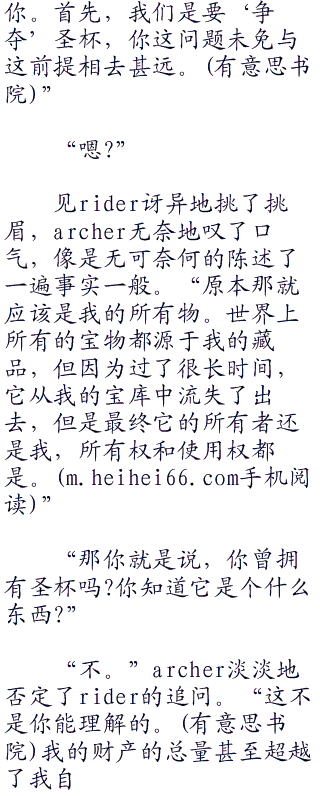 你。首先，我们是要‘争
夺’圣杯，你这问题未免与
这前提相去甚远。(有意思书
院)”
“嗯?”
见rider讶异地挑了挑
眉，archer无奈地叹了口
气，像是无可奈何的陈述了
一遍事实一般。“原本那就
应该是我的所有物。世界上
所有的宝物都源于我的藏
品，但因为过了很长时间，
它从我的宝库中流失了出
去，但是最终它的所有者还
是我，所有权和使用权都
是。(m.heihei66.com手机阅
读)”
“那你就是说，你曾拥
有圣杯吗?你知道它是个什么
东西?”
“不。”archer淡淡地
否定了rider的追问。“这不
是你能理解的。(有意思书
院)我的财产的总量甚至超越
了我自